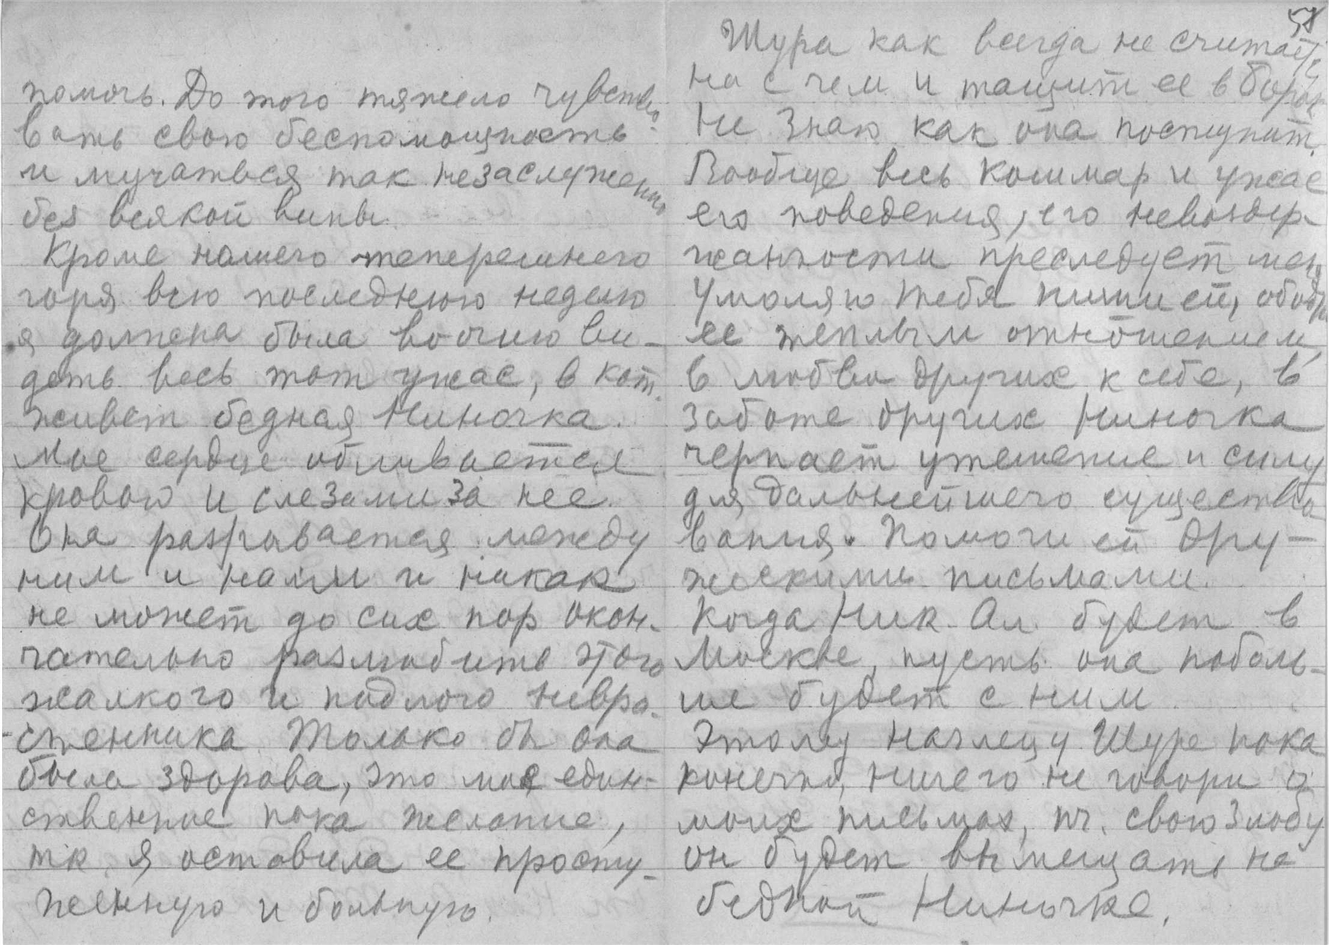 помочь. До того тяжело чувство-
вать свою беспомощность
и мучаться так незаслуженно
без всякой вины.
Кроме нашего теперешнего
горя всю последнюю неделю
я должна была воочию ви-
деть весь тот ужас, в кот.
живет бедная Ниночка.
Мое сердце обливается
кровью и слезами за нее.
Она разрывается между
ним и нами и никак
не может до сих пор окон-
чательно разлюбить этого
жалкого и подлого невра-
стенника. Только бы она
была здорова, это мое един-
ственное пока желание,
тк я оставила ее просту-
женную и больную.
58
Шура как всегда не считает
ни с чем и тащит ее в
Не знаю как она поступит.
Вообще весь кошмар и ужас
его поведения, его невыдер-
жанности преследует меня
Умоляю тебя пиши ей, ободри
ее теплым отношением,
в любви других к себе, в
заботе других Ниночка
черпает утешение и силу
для дальнейшего существо
вания. Помоги ей дру-
жескими письмами.
Когда Ник. Ал. будет в
Москве, пусть она поболь-
ше будет с ним.
Этому наглецу Шуре пока
конечно, ничего не говори о
моих письмах, пч. свою злобу
он будет вымещать на
бедной Ниночке.